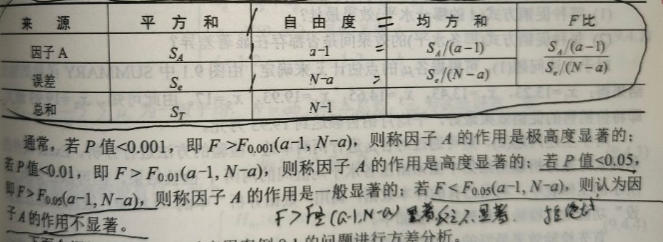 来 源 平 方 和 自 由 度 = 均 方 和 F比
因子A S_A a-1 = S_A/(a-1) S_A/(a-1)
误差 S_e N-a = S_e/(N-a) S_e/(N-a)
总和 S_T N-1
通常，若P值<0.001，即F>F_{0.001}(a-1, N-a)，则称因子A的作用是极高度显著的；
若P值<0.01，即F>F_{0.01}(a-1, N-a)，则称因子A的作用是高度显著的；若P值<0.05，
即F>F_{0.05}(a-1, N-a)，则称因子A的作用是一般显著的；若F<F_{0.05}(a-1, N-a)，则认为因
子A的作用不显著。 F> (a-1,N-a) 显著 反之不显著.
的问题进行方差分析。